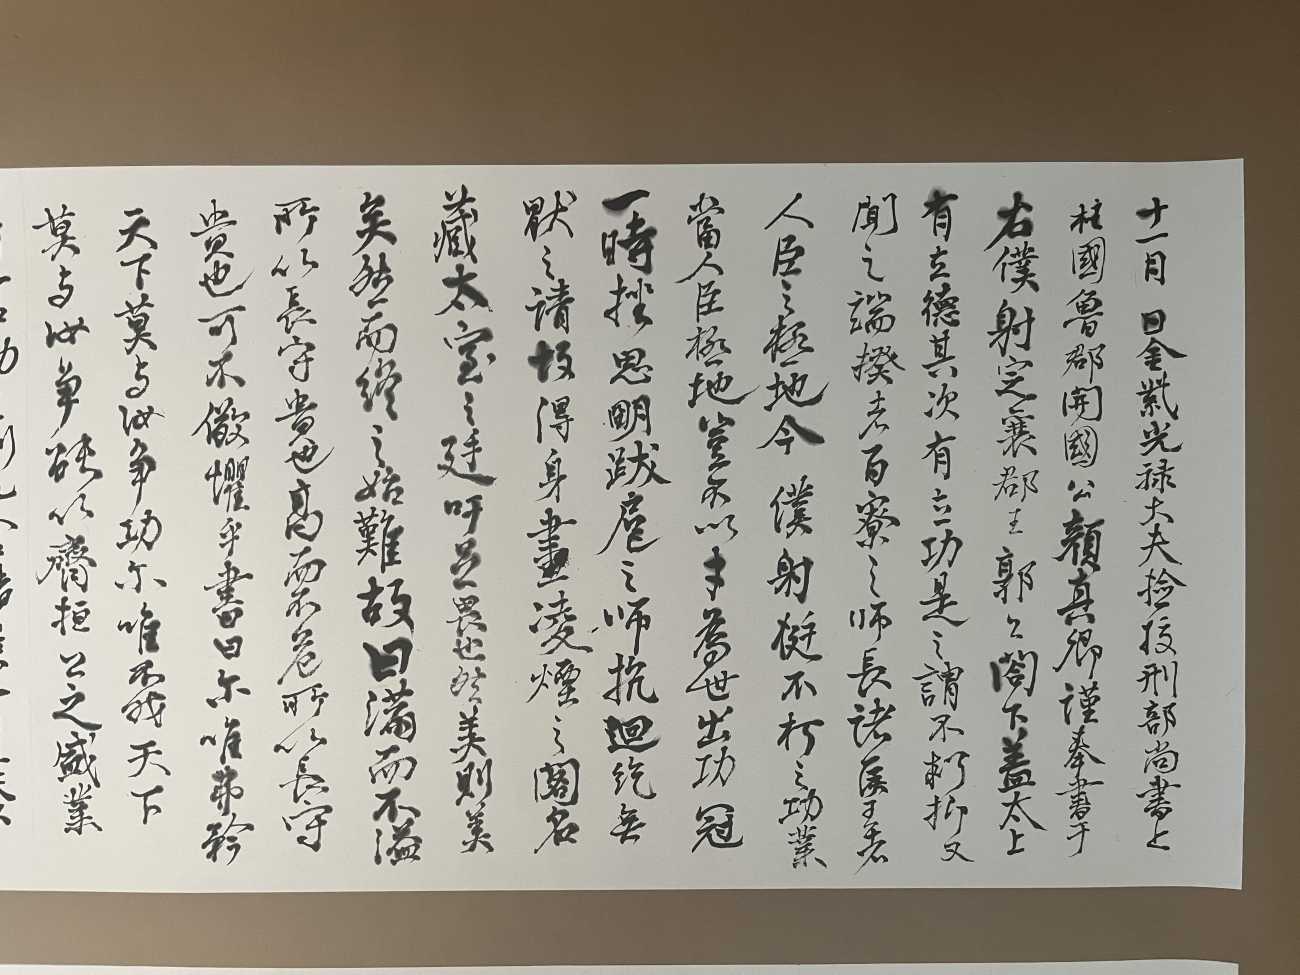 十一月 日金紫光禄大夫捡挍刑部尚書上
柱國魯郡開國公顏真卿謹奉書于
右僕射定襄郡王郭公閤下蓋太上
有立德其次有立功是之謂不朽抑又
聞之端揆者百寮之師長諸侯王者
人臣之極地今僕射挺不朽之功業
當人臣極地豈不以才為世出功冠
一時挫思明跋扈之師抗迴紇無
猒之請故得身畫凌煙之閣名
藏太室之廷吁足畏也然美則美
矣然而終之始難故曰滿而不溢
所以長守富也高而不危所以長守
貴也可不儆懼乎書曰尔唯弗矜
天下莫与汝爭功尔唯不伐天下
莫与汝爭能以齊桓公之盛業